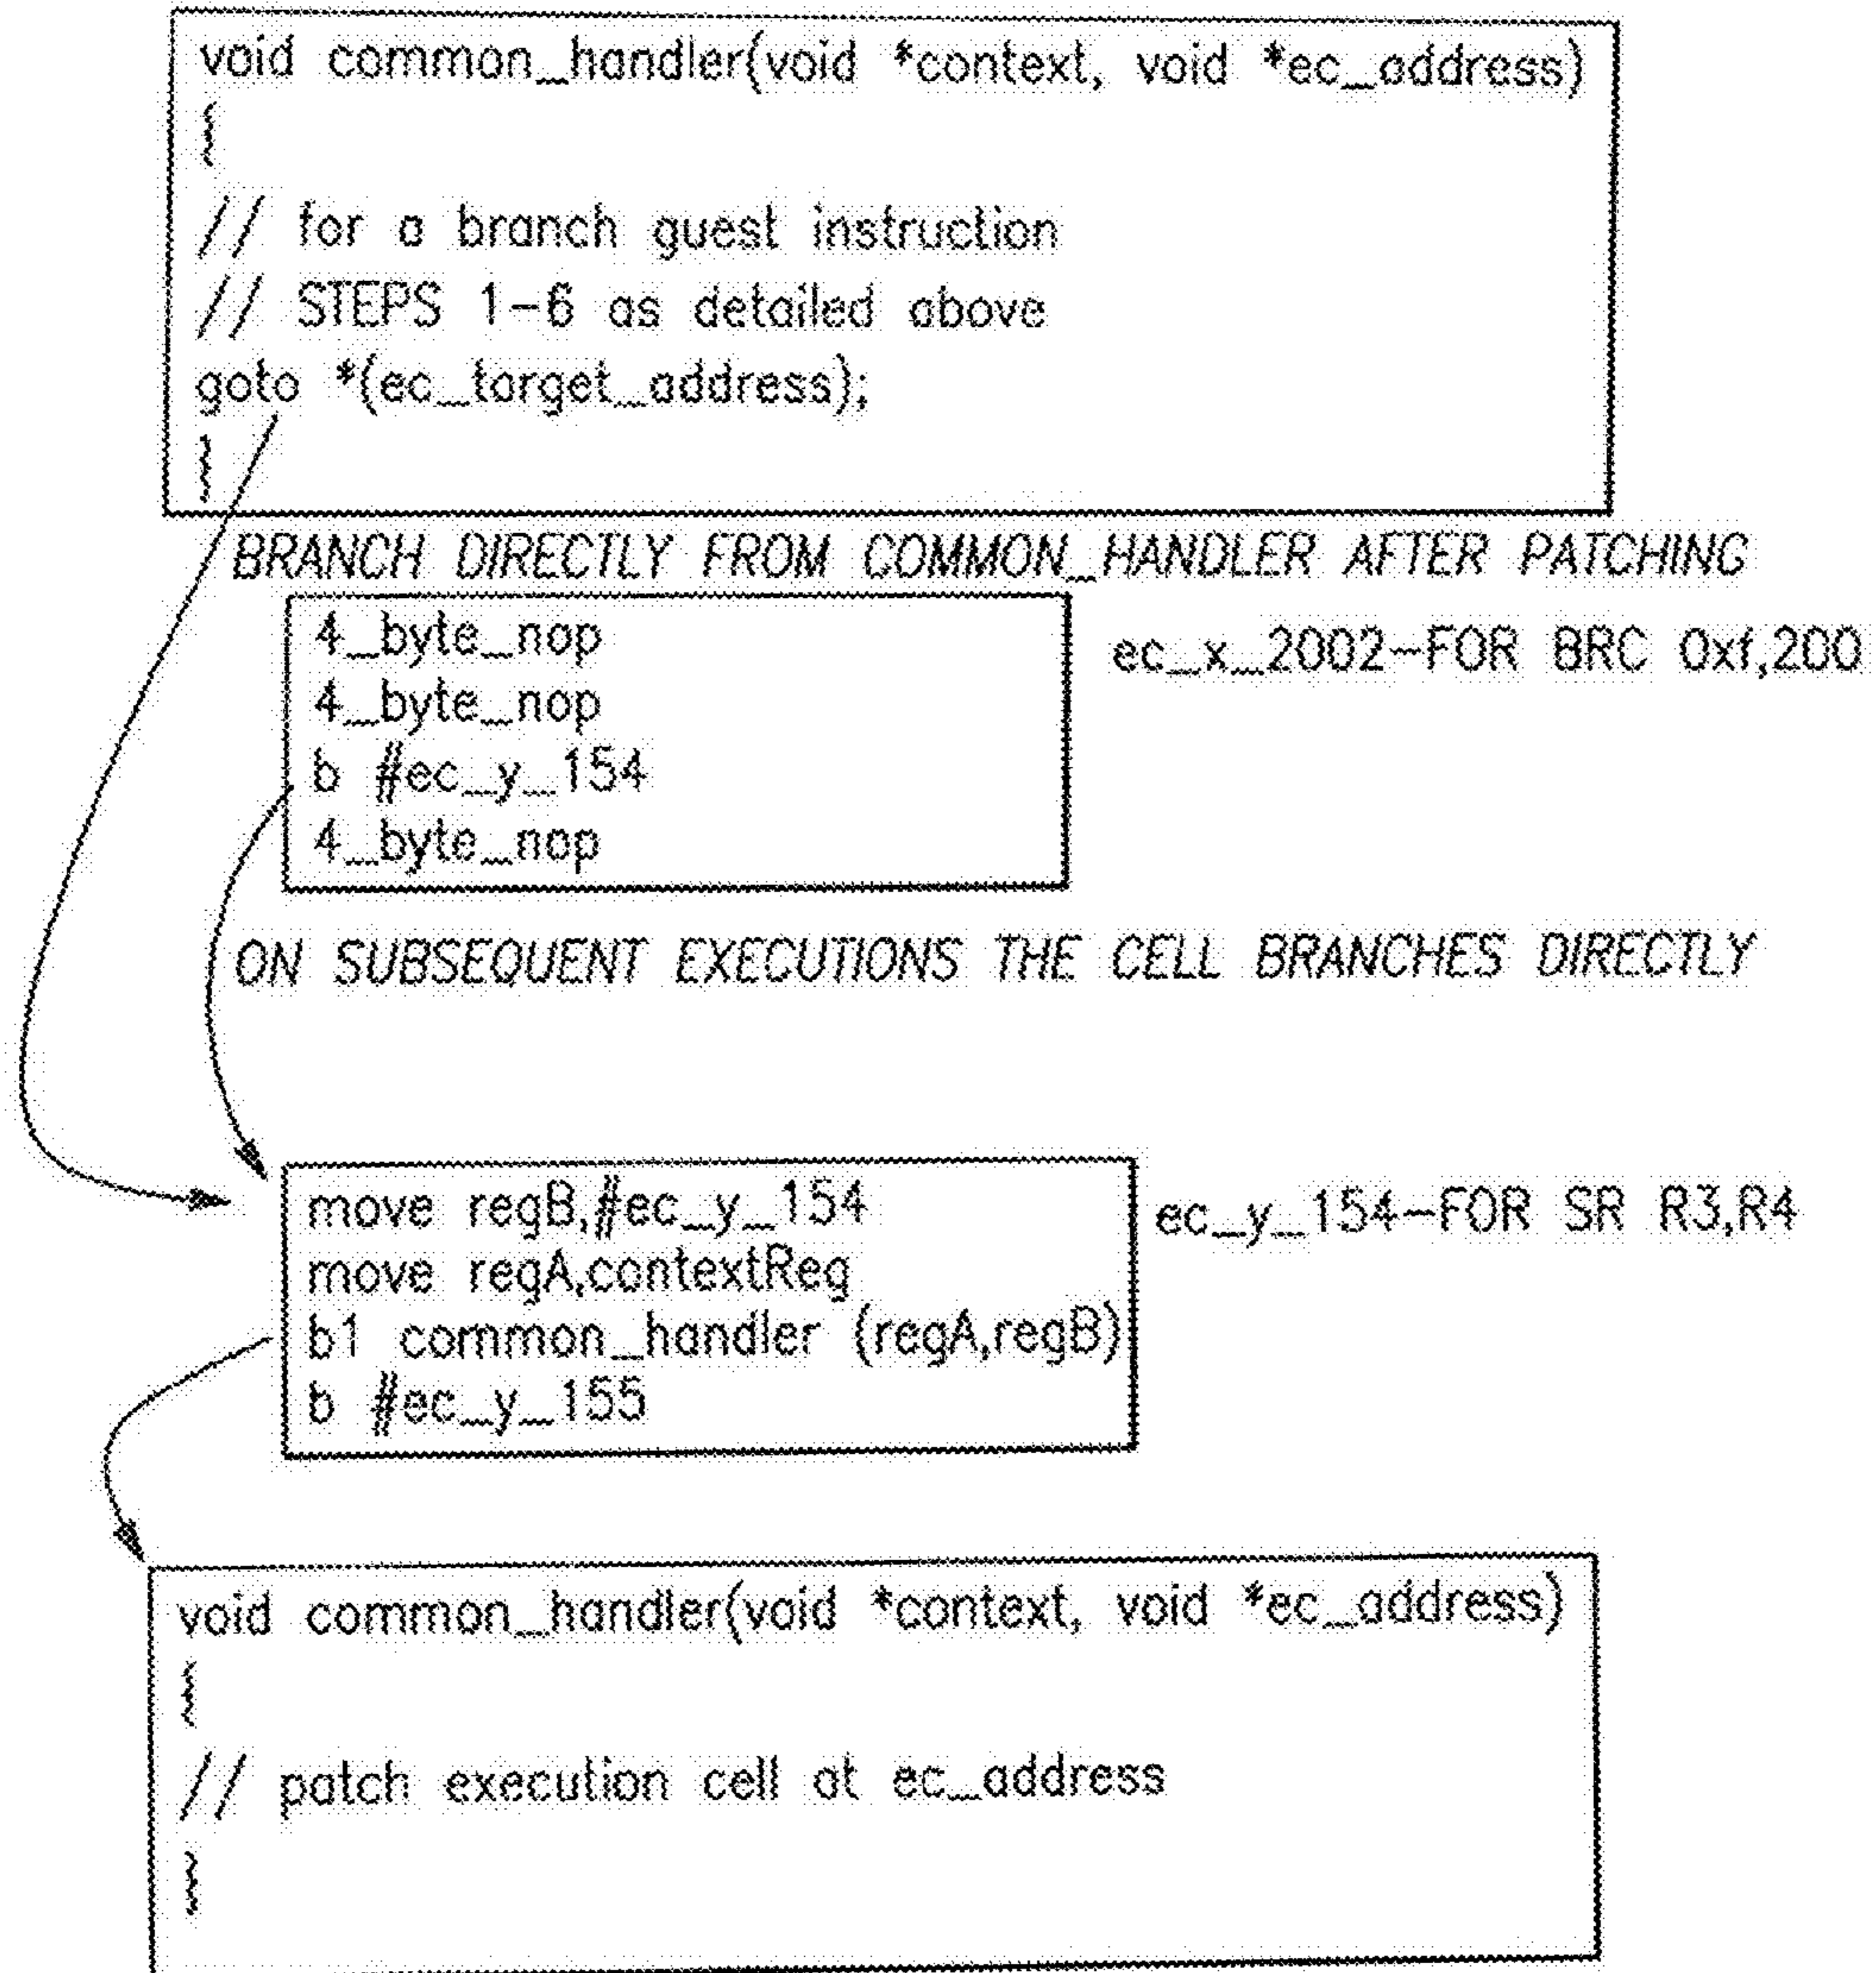 void common_handler(void *context, void *ec_address)
{
// for a branch guest instruction
// STEPS 1-6 as detailed above
goto *(ec_target_address);
}
BRANCH DIRECTLY FROM COMMON_HANDLER AFTER PATCHING
4_byte_nop
ec_x_2002-FOR BRC 0xf,200
4_byte_nop
b #ec_y_154
4_byte_nop
ON SUBSEQUENT EXECUTIONS THE CELL BRANCHES DIRECTLY
move regB,#ec_y_154
ec_y_154-FOR SR R3,R4
move regA,contextReg
b1 common_handler (regA,regB)
b #ec_y_155
void common_handler(void *context, void *ec_address)
{
// patch execution cell at ec_address
}